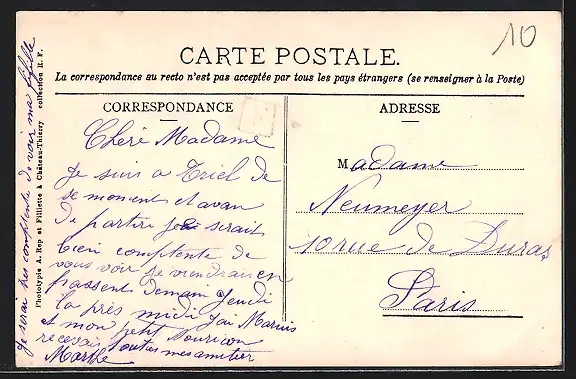 10
CARTE POSTALE.
La correspondance au recto n'est pas acceptée par tous les pays étrangers (se renseigner à la Poste)
CORRESPONDANCE
Cheré Madame
Je suis a Triel de
se moment et avan
de partire je serait
bien comptente de
vous voir je viendrai en
passent demain jeudi
la près midi jai Marius
et mon petit
recevais toutes mes amitier
Marthe
Je serai tres comptente de voir ma fillette
Phototypie A. Rep et Filliette à Château-Thierry collection R. F.
ADRESSE
Madame
Neumeyer
10 rue de Duras
Paris